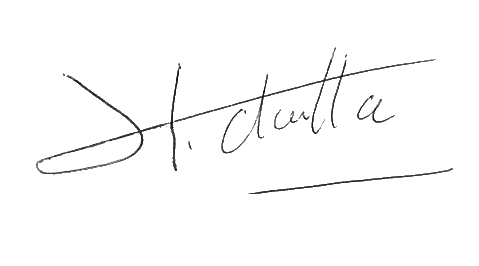 H. dutta